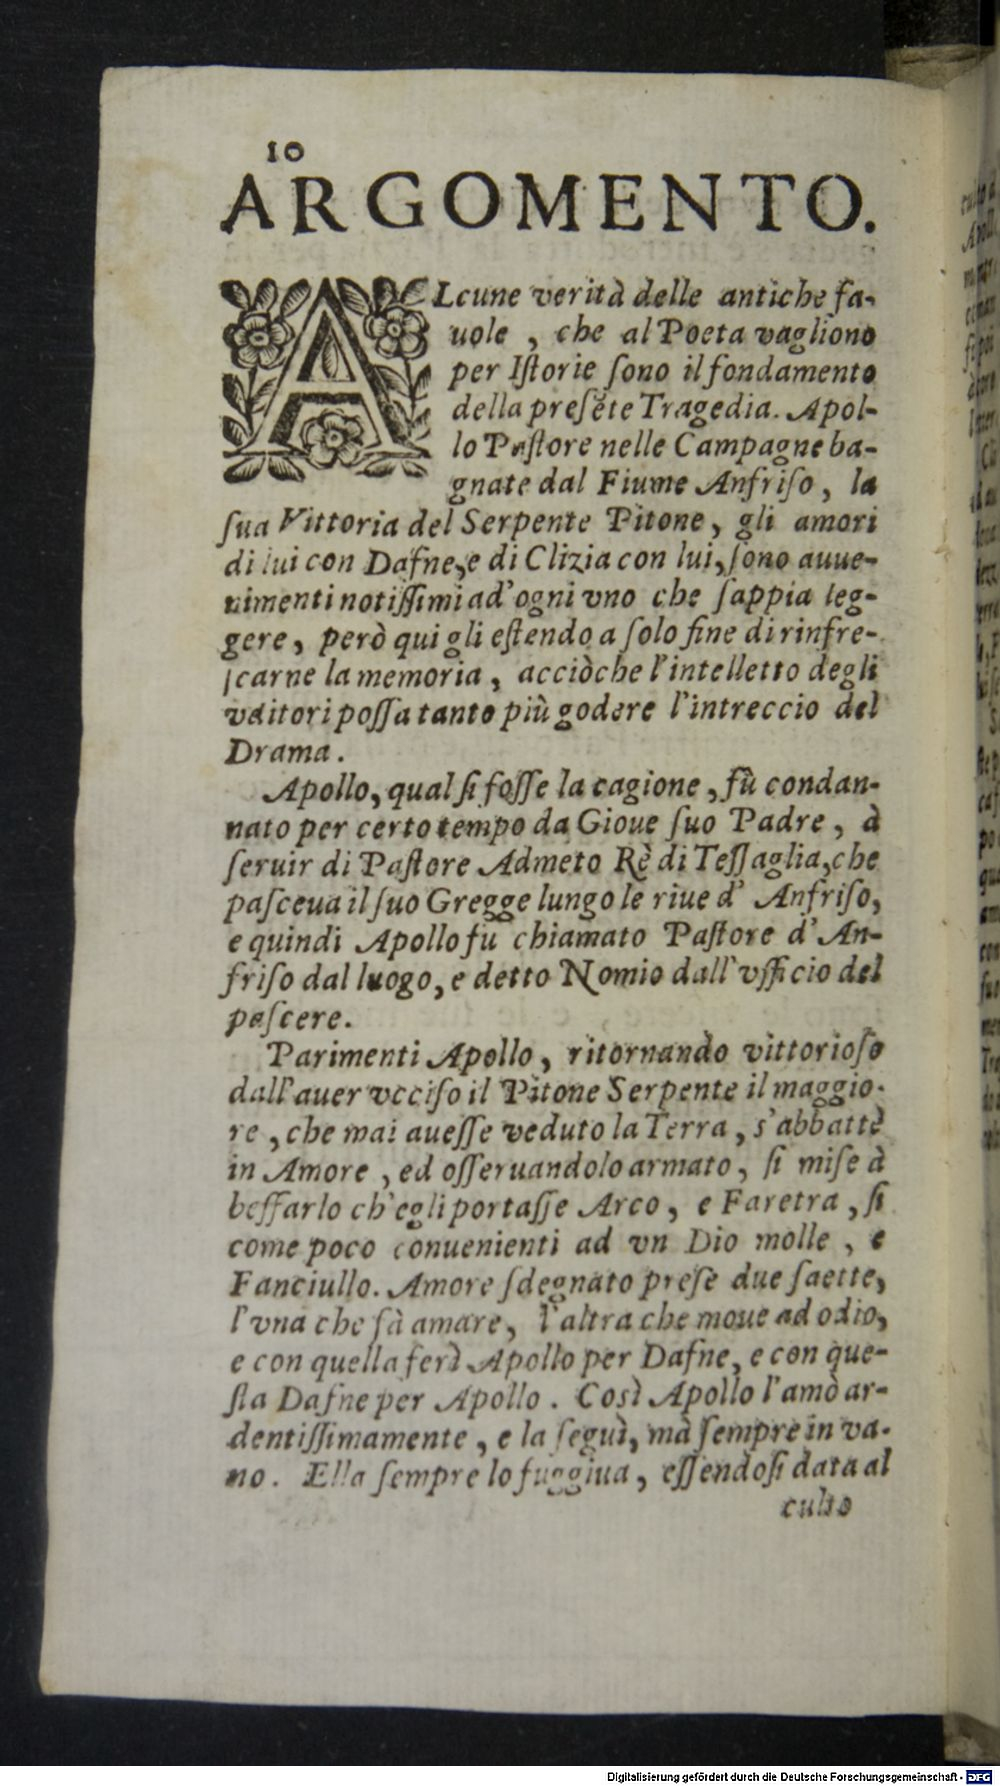 10
ARGOMENTO.
ALcune verità delle antiche fa-
uole, che al Poeta vagliono
per Iſtorie ſono il fondamento
della preſẽte Tragedia. Apol-
lo Paſtore nelle Campagne ba-
gnate dal Fiume Anfriſo, la
ſua Vittoria del Serpente Pitone, gli amori
di lui con Dafne, e di Clizia con lui, ſono auue-
nimenti notiſſimi ad' ogni vno che ſappia leg-
gere, però qui gli eſtendo a ſolo fine di rinfre-
ſcarne la memoria, acciòche l'intelletto degli
vditori poſſa tanto più godere l'intreccio del
Drama.
Apollo, qual ſi foſſe la cagione, fù condan-
nato per certo tempo da Gioue ſuo Padre, à
ſeruir di Paſtore Admeto Rè di Teſſaglia, che
paſceua il ſuo Gregge lungo le riue d' Anfriſo,
e quindi Apollo fu chiamato Paſtore d' An-
friſo dal luogo, e detto Nomio dall' vfficio del
paſcere.
Parimenti Apollo, ritornando vittorioſo
dall' auer vcciſo il Pitone Serpente il maggio-
re, che mai aueſſe veduto la Terra, s'abbattè
in Amore, ed oſſeruandolo armato, ſi miſe à
beffarlo ch' egli portaſſe Arco, e Faretra, ſi
come poco conuenienti ad vn Dio molle, e
Fanciullo. Amore ſdegnato preſe due ſaette,
l'vna che fà amare, l'altra che moue ad odio,
e con quella ferì Apollo per Dafne, e con que-
ſta Dafne per Apollo. Così Apollo l'amò ar-
dentiſſimamente, e la ſeguì, mà ſempre in va-
no. Ella ſempre lo fuggiua, eſſendoſi data al
culto
Digitalisierung gefördert durch die Deutsche Forschungsgemeinschaft - DFG